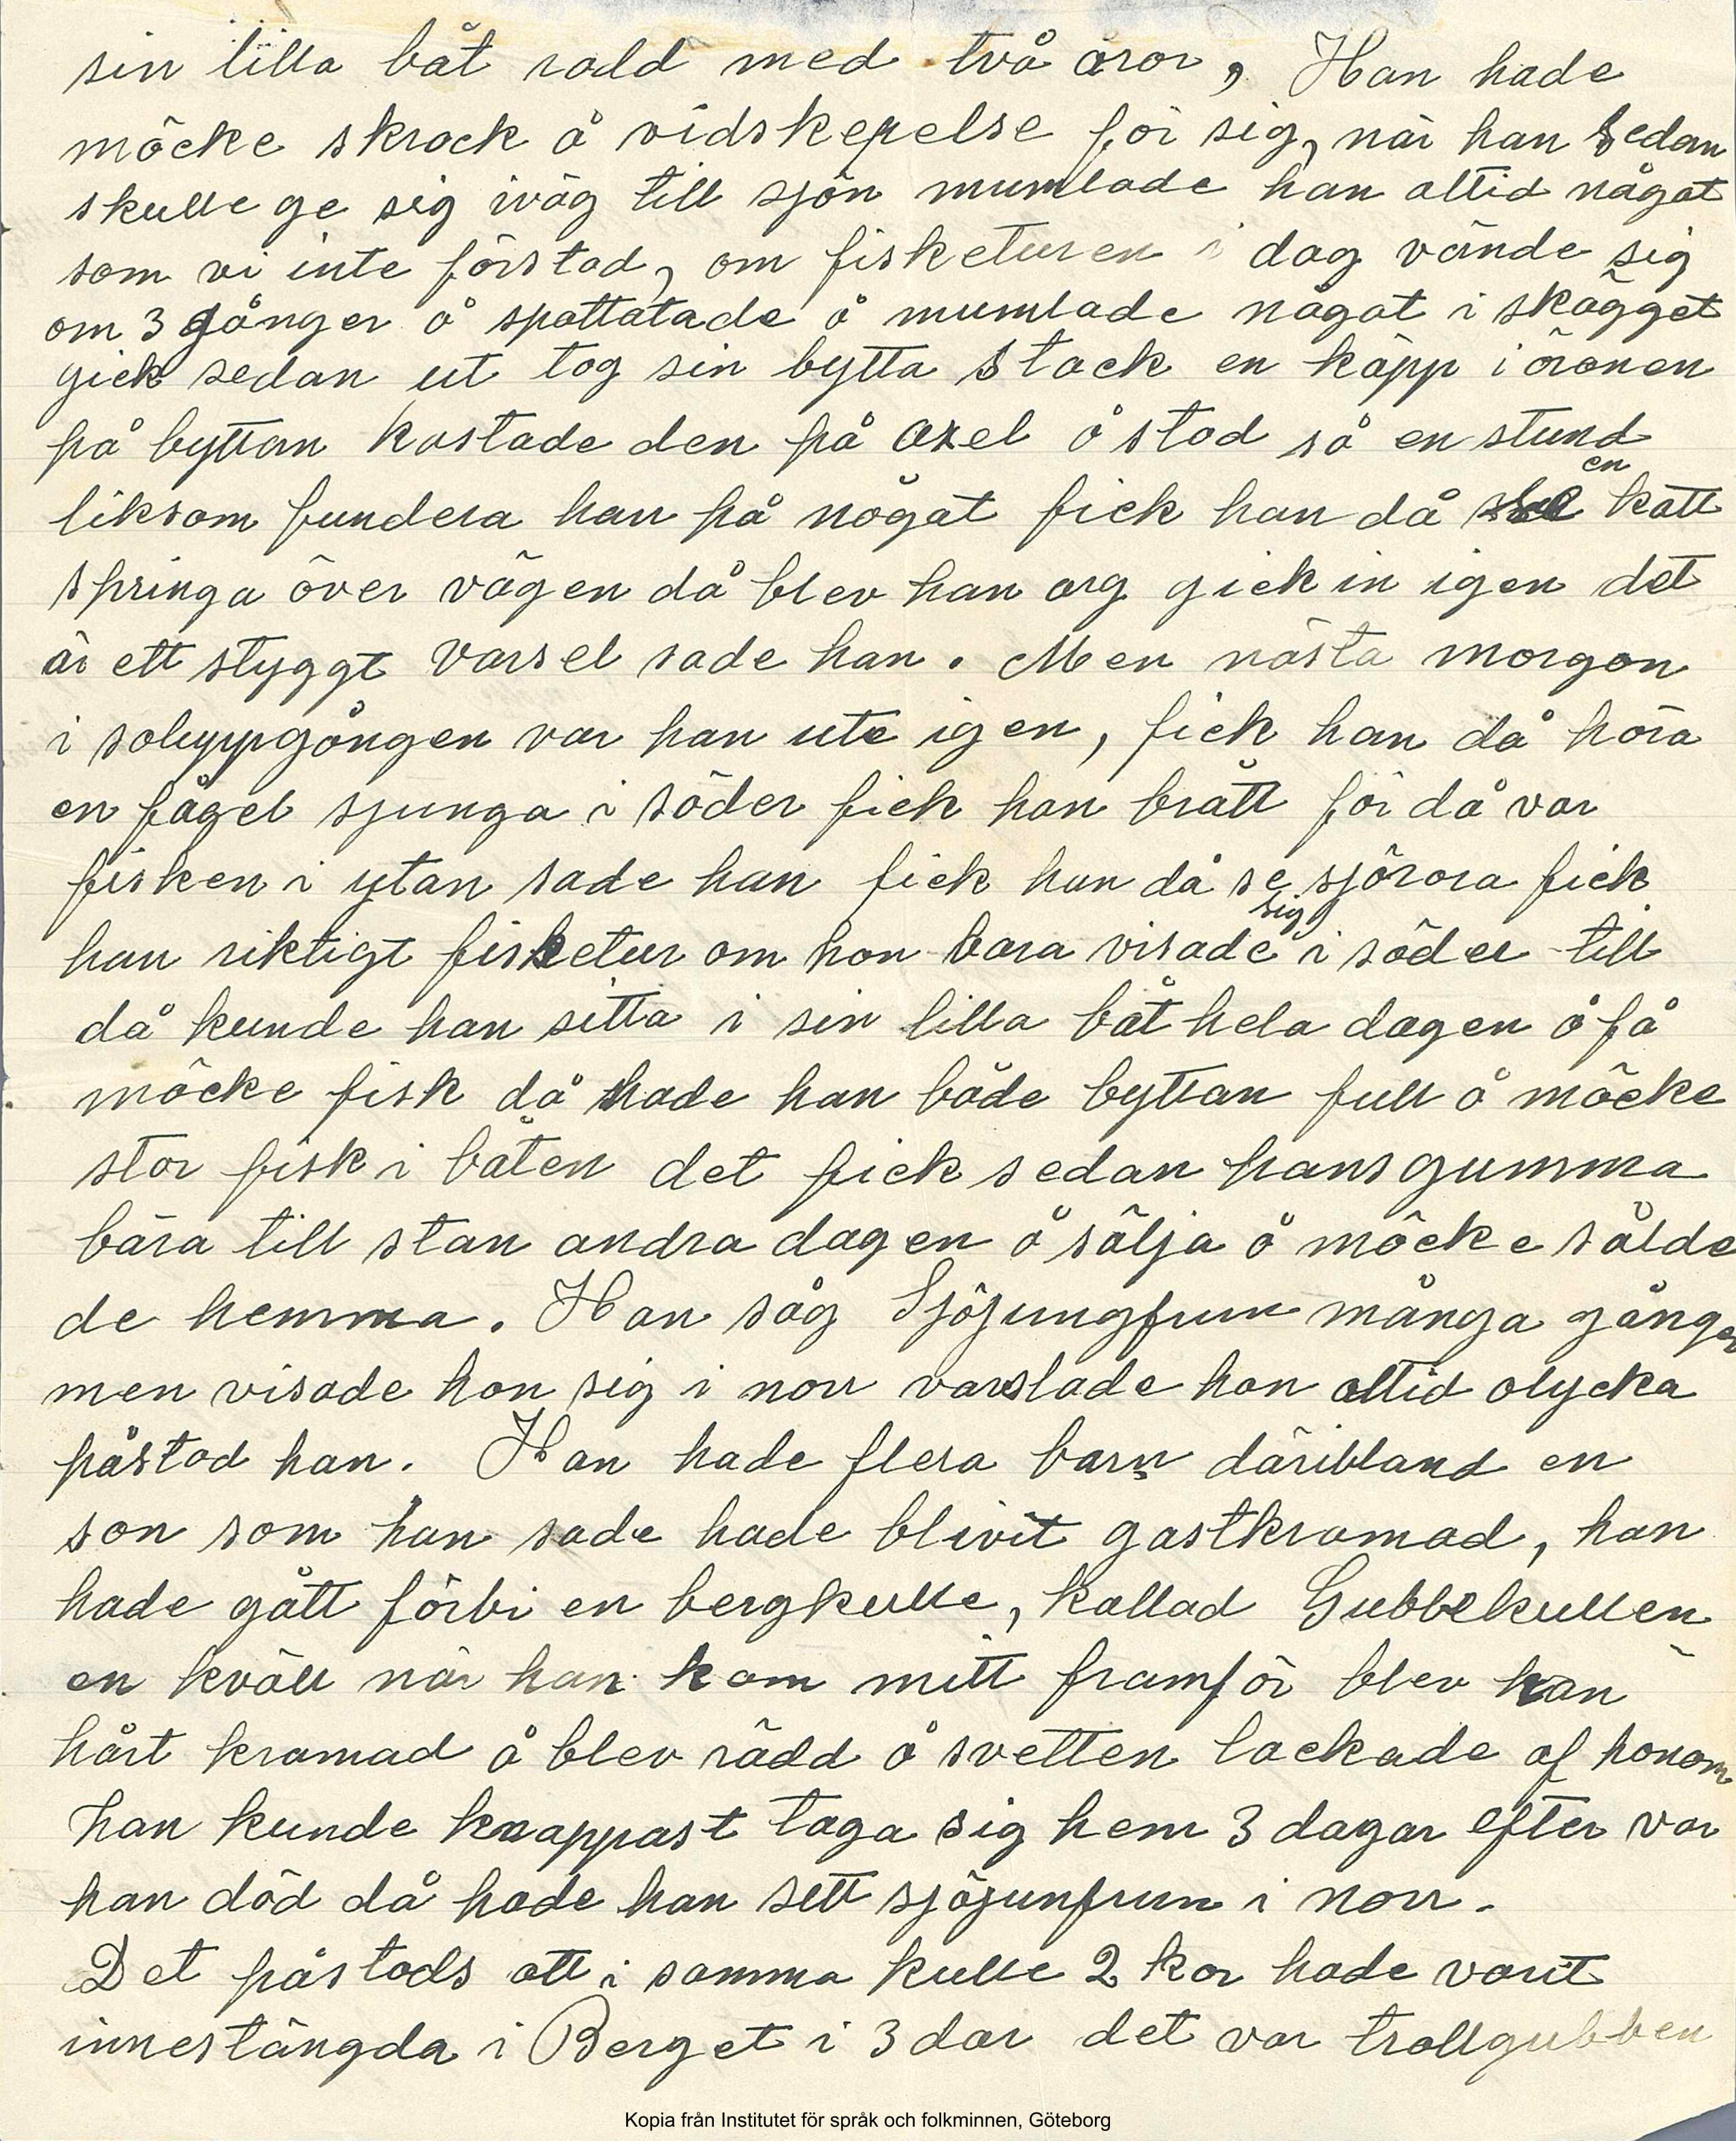 sin lilla båt rodd med två åror, Han hade
möcke skrock å vidskepelse för sig, när han sedan
skulle ge sig iväg till sjön mumlade han alltid något
som vi inte förstod, om fisketuren i dag vände sig
om 3 gånger å spottatade å mumlade något i skägget
gick sedan ut tog sin bytta stack en käpp i öronen
på byttan kastade den på axel å stod så en stund
liksom fundera han på något fick han då se en katt
springa över vägen då blev han arg gick in igen det
är ett styggt varsel sade han. Men nästa morgon
i soluppgången var han ute igen, fick han då höra
en fågel sjunga i söder fick han brått för då var
fisken i ytan sade han fick han då se sjörora fick
han riktigt fisketur om hon bara visade sig i söder till
då kunde han sitta i sin lilla båt hela dagen å få
möcke fisk då hade han både byttan full å möcke
stor fisk i båten det fick sedan hans gumma
bära till stan andra dagen å sälja å möcke sålde
de hemma. Han såg Sjöjungfrun många gånger
men visade hon sig i norr varslade hon alltid olycka
påstod han. Han hade flera barn däribland en
son som han sade hade blivit gastkramad, han
hade gått förbi en bergkulle, kallad Gubbekullen
en kväll när han kom mitt framför blev han
hårt kramad å blev rädd å svetten lackade af honom
han kunde knappast taga sig hem 3 dagar efter var
han död då hade han sett sjöjunfrun i norr.
Det påstods att i samma kulle 2 kor hade varit
innestängda i Berget i 3 dar det var trollgubben
Kopia från Institutet för språk och folkminnen, Göteborg